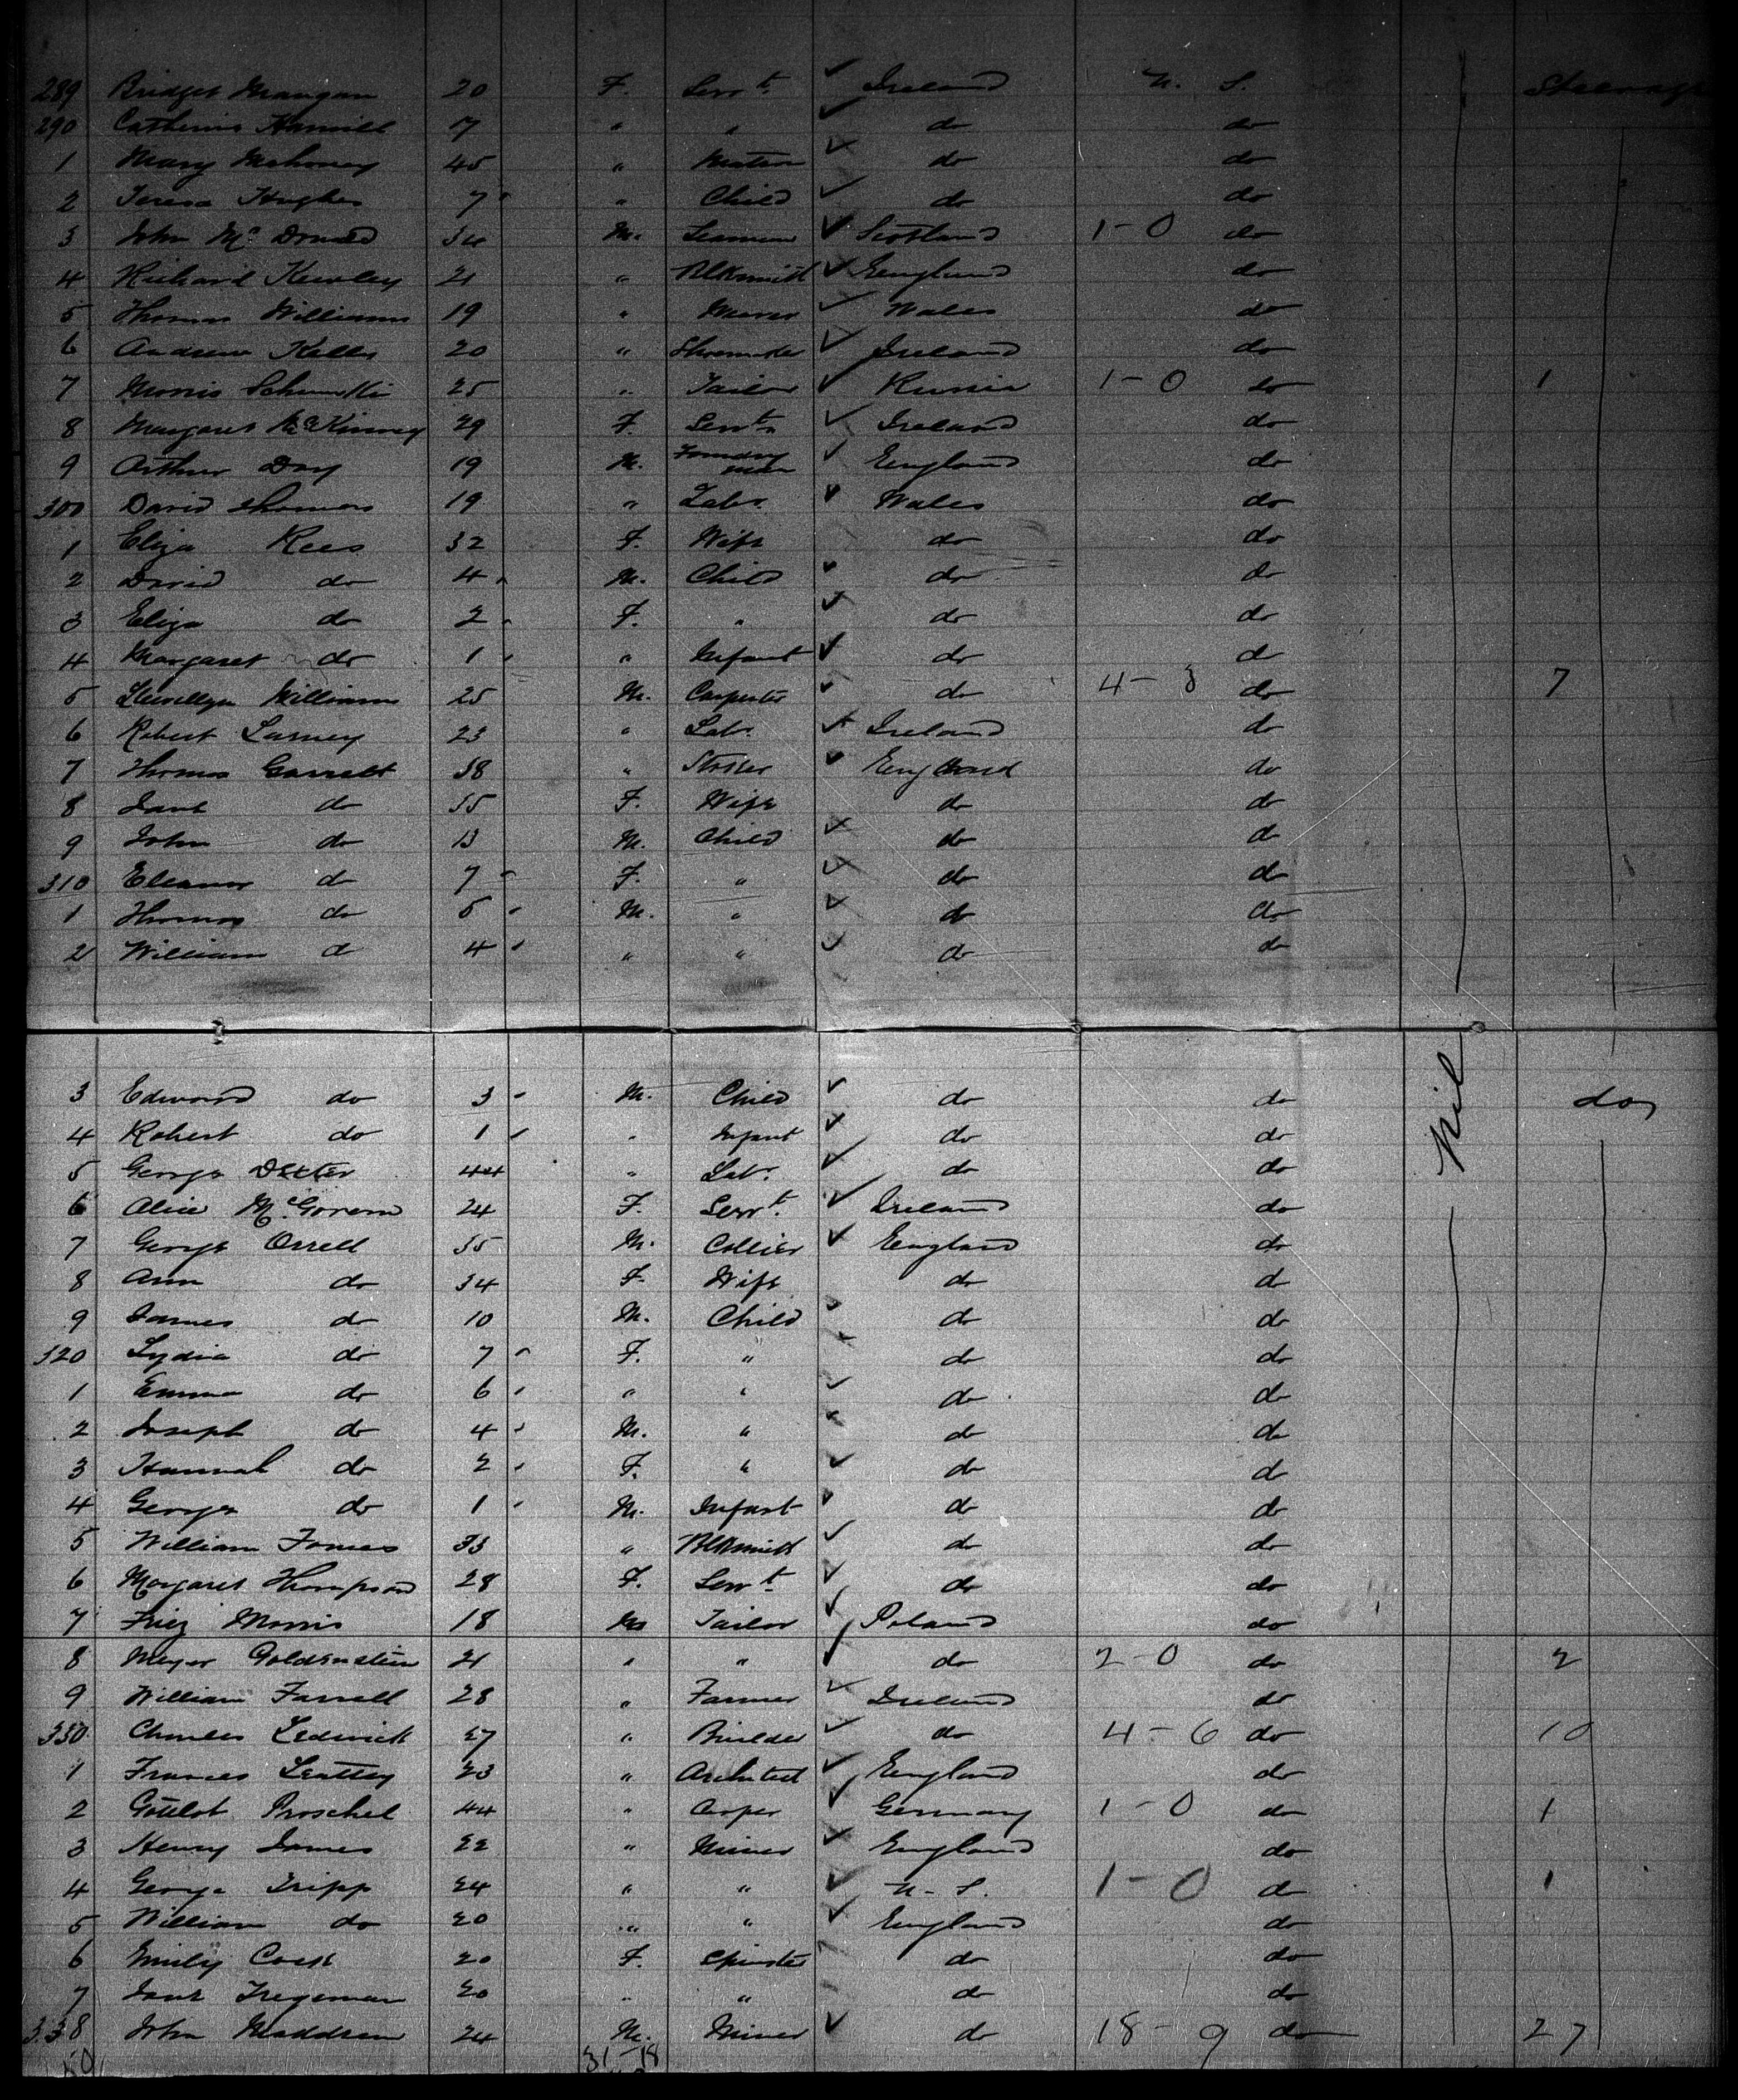 289 Bridget Mangan 20 F. Servt. Ireland U. S. Steerage
290 Catherine Hamill 17 " " do do
1 Mary Mahoney 45 " Matron do do
2 Teresa Hughes 7 " Child do do
3 John McDonald 34 M. Seaman Scotland 1-0 do
4 Richard Kewley 21 " Blksmith England do
5 Thomas Williams 19 " Miner Wales do
6 Andrew Kelly 20 " Shoemaker Ireland do
7 Morris 25 " Tailor Russia 1-0 do 1
8 Margaret McKinney 29 F. Servt. Ireland do
9 Arthur Day 19 M. Foundry man England do
300 David Thomas 19 " Labr. Wales do
1 Eliza Rees 32 F. Wife do do
2 David do 4 M. Child do do
3 Eliza do 2 F. " do do
4 Margaret do 1 " Infant do do
5 Llewellyn Williams 25 M. Carpenter do 4-3 do 7
6 Robert 23 " Labr. Ireland do
7 Thomas Garrett 38 " England do
8 Jane do 35 F. Wife do do
9 John do 13 M. Child do do
310 Eleanor do 7 F. " do do
1 Thomas do 5 M. " do do
2 William do 4 " " do do
3 Edward do 3 M. Child do do Nil do
4 Robert do 1 " Infant do do
5 George Dexter 44 " Labr. do do
6 Alice McGovern 24 F. Servt. Ireland do
7 George Orrell 35 M. Collier England do
8 Ann do 34 F. Wife do do
9 James do 10 M. Child do do
320 Lydia do 7 F. " do do
1 Emma do 6 " " do do
2 Joseph do 4 M. " do do
3 Hannah do 2 F. " do do
4 George do 1 M. Infant do do
5 William 33 " Blksmith do do
6 Margaret Thompson 28 F. Servt. do do
7 Morris 18 M. Tailor Poland do
8 Meyer 21 " " do 2-0 do 2
9 William Farrell 28 " Farmer Ireland do
330 Charles Ledwick 27 " Builder do 4-6 do 10
1 Frances 23 " Architect England do
2 Gottlob Proschel 44 " Germany 1-0 do 1
3 Henry James 22 " Miner England do
4 George Tripp 24 " " U. S. 1-0 do 1
5 William do 20 " " England do
6 Emily 20 F. Spinster do do
7 Jane Tregeman 20 " " do do
338 John Maddren 24 M. Miner do 18-9 do 27
50 31-18